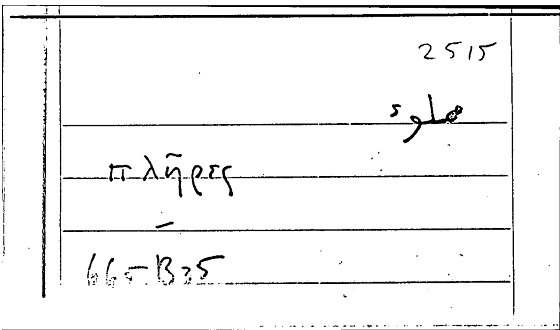 2515
مملوء
πλῆρες
–
665B35